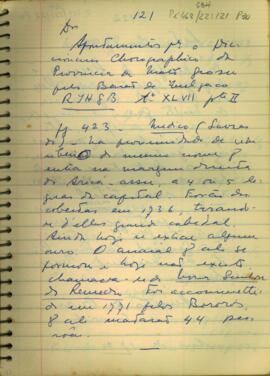 121
Do
Apontamentos pª o Dic
cionario Chorographico da
Provincia de Matto Grosso
pelo Barão de Melgaço
R I H G B. Tº XLVII pte II
pg 423 - Medico (Lavras
do) - Na proximidade de um
ribeirão do mesmo nome q
entra na margem direita
do Aricá-assu, a 4 ou 5 le
guas da capital. Forão des
cobertas em 1736, tirando-
se d'ellas grande cabedal.
Ainda hoje existe algum
ouro. O arraial q ali se
formou e hoje não existe
chamava-se de Nossa Senhora
do Remedio. Foi accommetti
do em 1771 pelos Bororos
q ali matarão 44 pes
sôas.